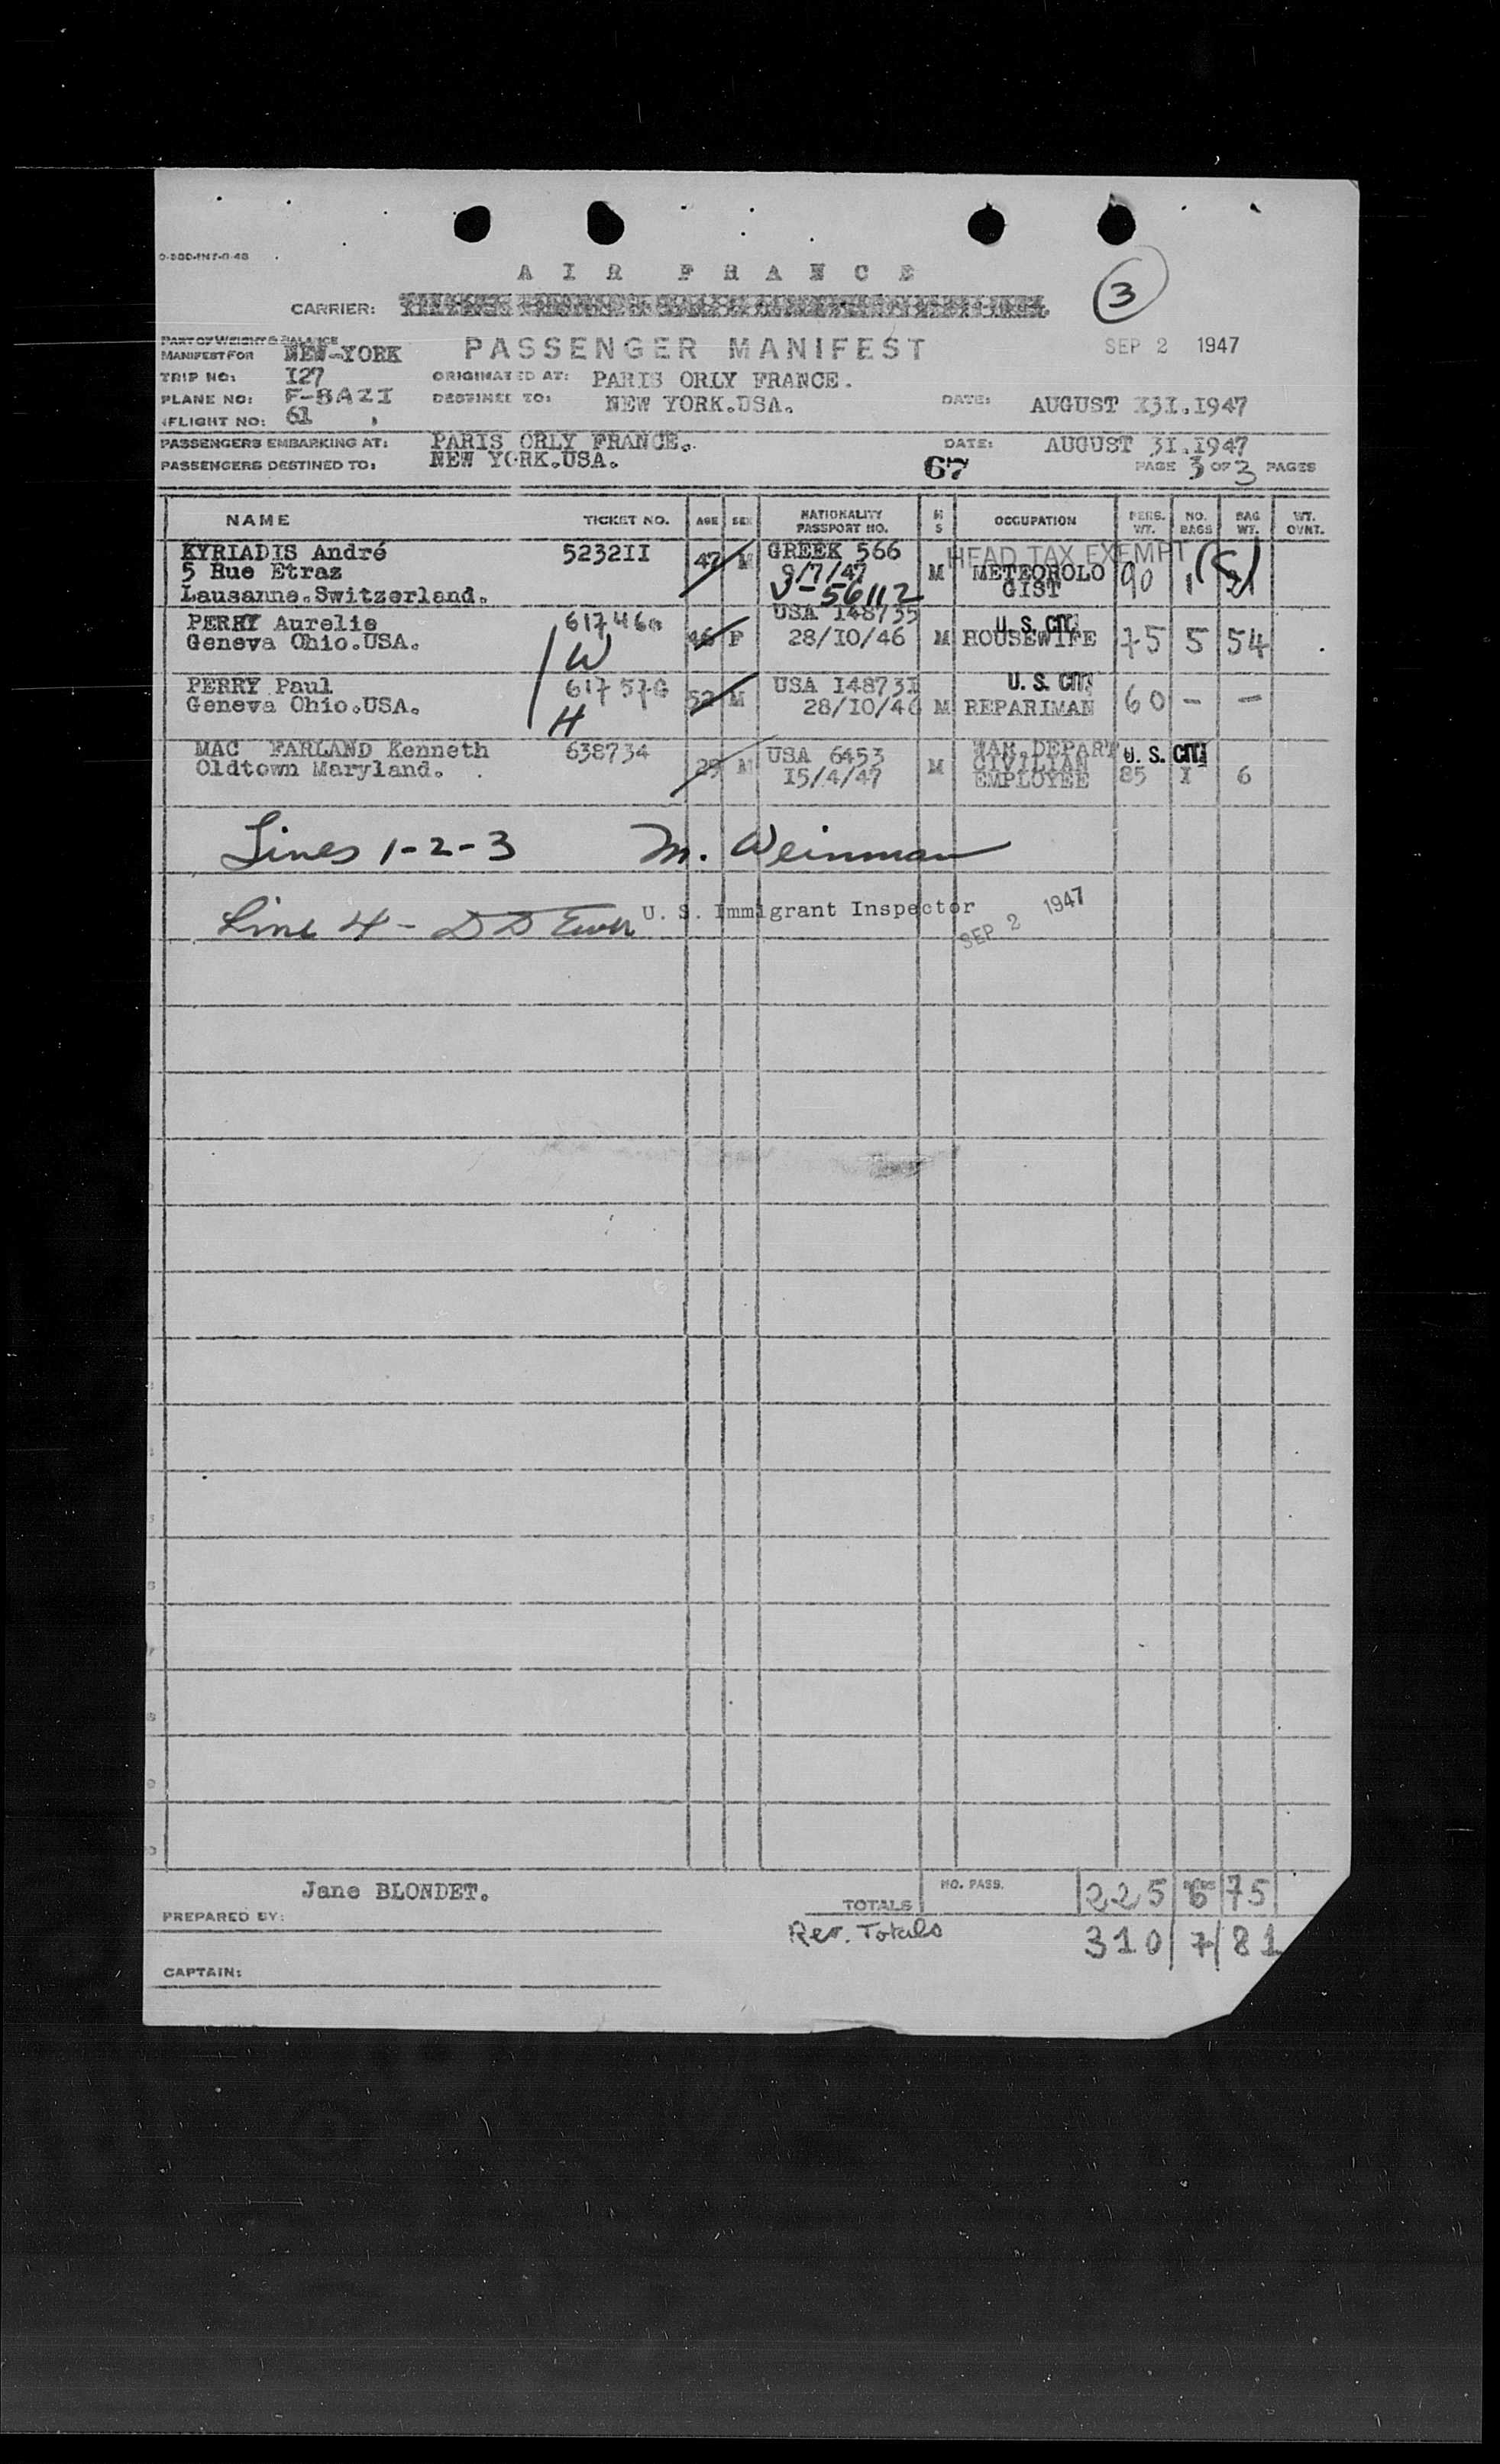 AIR FRANCE
CARRIER:
3
PART OF WEIGHT & BALANCE
MANIFEST FOR NEW-YORK PASSENGER MANIFEST SEP 2 1947
TRIP NO: I27 ORIGINATED AT: PARIS ORLY FRANCE.
PLANE NO: F-BAZI DESTINED TO: NEW YORK.USA. DATE: AUGUST 131.1947
FLIGHT NO: 61
PASSENGERS EMBARKING AT: PARIS ORLY FRANCE. DATE: AUGUST 3I.I947
PASSENGERS DESTINED TO: NEW YORK.USA. 67 PAGE 3 OF 3 PAGES
NAME TICKET NO. AGE SEX NATIONALITY PASSPORT NO. M S OCCUPATION PERS. WT. NO. BAGS BAG WT. WT. OVNT.
KYRIADIS André 5232II 47 M GREEK 566 HEAD TAX EXEMPT
5 Rue Etraz 9/7/47 M METEOROLO 90 1
Lausanne.Switzerland. V-56112 GIST
PERRY Aurelie 617460 46 F USA I48735 U. S. CIT.
Geneva Ohio.USA. W 28/IO/46 M HOUSEWIFE 75 5 54
PERRY Paul 617570 52 M USA I4873I U. S. CIT.
Geneva Ohio.USA. H 28/IO/46 M REPARIMAN 60 - -
MAC FARLAND Kenneth 638734 29 M USA 6453 WAR.DEPART U. S. CIT.
Oldtown Maryland. I5/4/47 M CIVILIAN
EMPLOYEE 85 I 6
Lines 1-2-3 M. Weinman
Line 4 - U. S. Immigrant Inspector SEP 2 1947
Jane BLONDET. NO. PASS. 225 6 75
PREPARED BY: TOTALS
Rev. Totals 310 7 81
CAPTAIN: